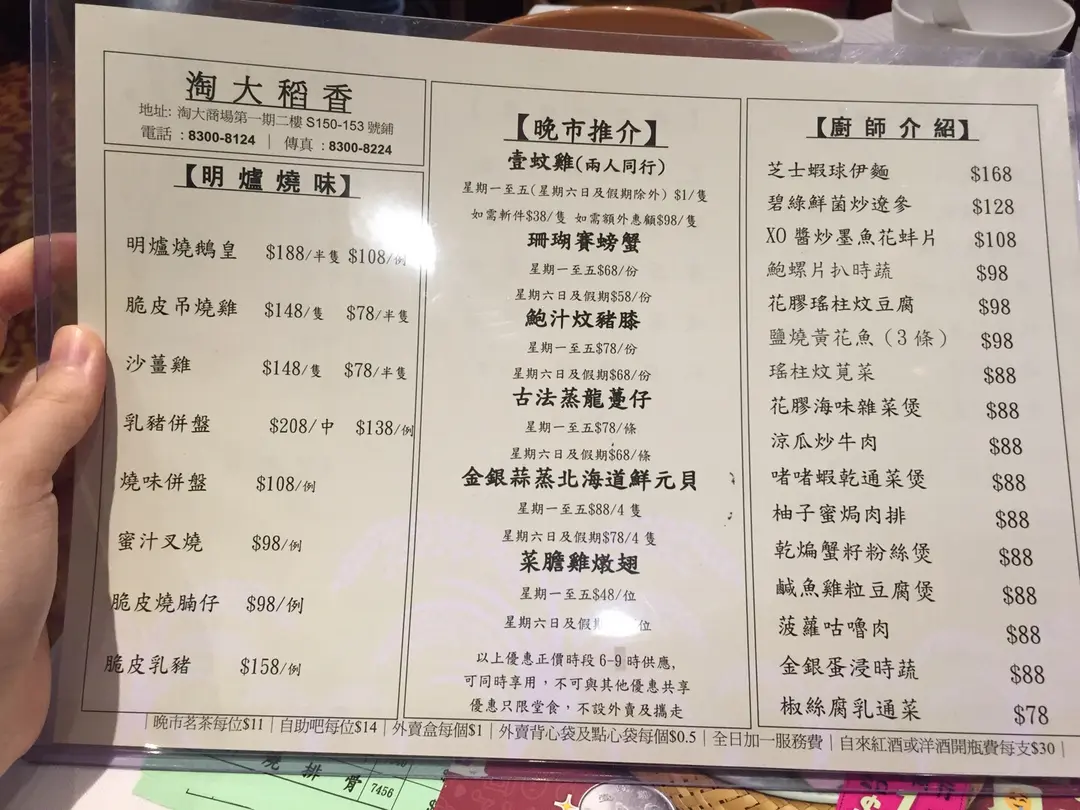 淘大稻香
地址: 淘大商場第一期二樓 S150-153 號鋪
電話 : 8300-8124 | 傳真 : 8300-8224
【明爐燒味】
明爐燒鵝皇 $188/半隻 $108/例
脆皮吊燒雞 $148/隻 $78/半隻
沙薑雞 $148/隻 $78/半隻
乳豬併盤 $208/中 $138/例
燒味併盤 $108/例
蜜汁叉燒 $98/例
脆皮燒腩仔 $98/例
脆皮乳豬 $158/例
【晚市推介】
壹蚊雞(兩人同行)
星期一至五(星期六日及假期除外) $1/隻
如需斬件$38/隻 如需額外惠顧$98/隻
珊瑚賽螃蟹
星期一至五$68/份
星期六日及假期$58/份
鮑汁炆豬膝
星期一至五$78/份
星期六日及假期$68/份
古法蒸龍躉仔
星期一至五$78/條
星期六日及假期$68/條
金銀蒜蒸北海道鮮元貝
星期一至五$88/4 隻
星期六日及假期$78/4 隻
菜膽雞燉翅
星期一至五$48/位
星期六日及假 位
以上優惠正價時段 6-9 時供應,
可同時享用，不可與其他優惠共享
優惠只限堂食，不設外賣及攜走
【廚師介紹】
芝士蝦球伊麵 $168
碧綠鮮菌炒遼參 $128
XO 醬炒墨魚花蚌片 $108
鮑螺片扒時蔬 $98
花膠瑤柱炆豆腐 $98
鹽燒黃花魚（3 條） $98
瑤柱炆莧菜 $88
花膠海味雜菜煲 $88
涼瓜炒牛肉 $88
啫啫蝦乾通菜煲 $88
柚子蜜焗肉排 $88
乾煸蟹籽粉絲煲 $88
鹹魚雞粒豆腐煲 $88
菠蘿咕嚕肉 $88
金銀蛋浸時蔬 $88
椒絲腐乳通菜 $78
| 晚市茗茶每位$11 | 自助吧每位$14 | 外賣盒每個$1 | 外賣背心袋及點心袋每個$0.5 | 全日加一服務費 | 自來紅酒或洋酒開瓶費每支$30 |
燒排骨 7456